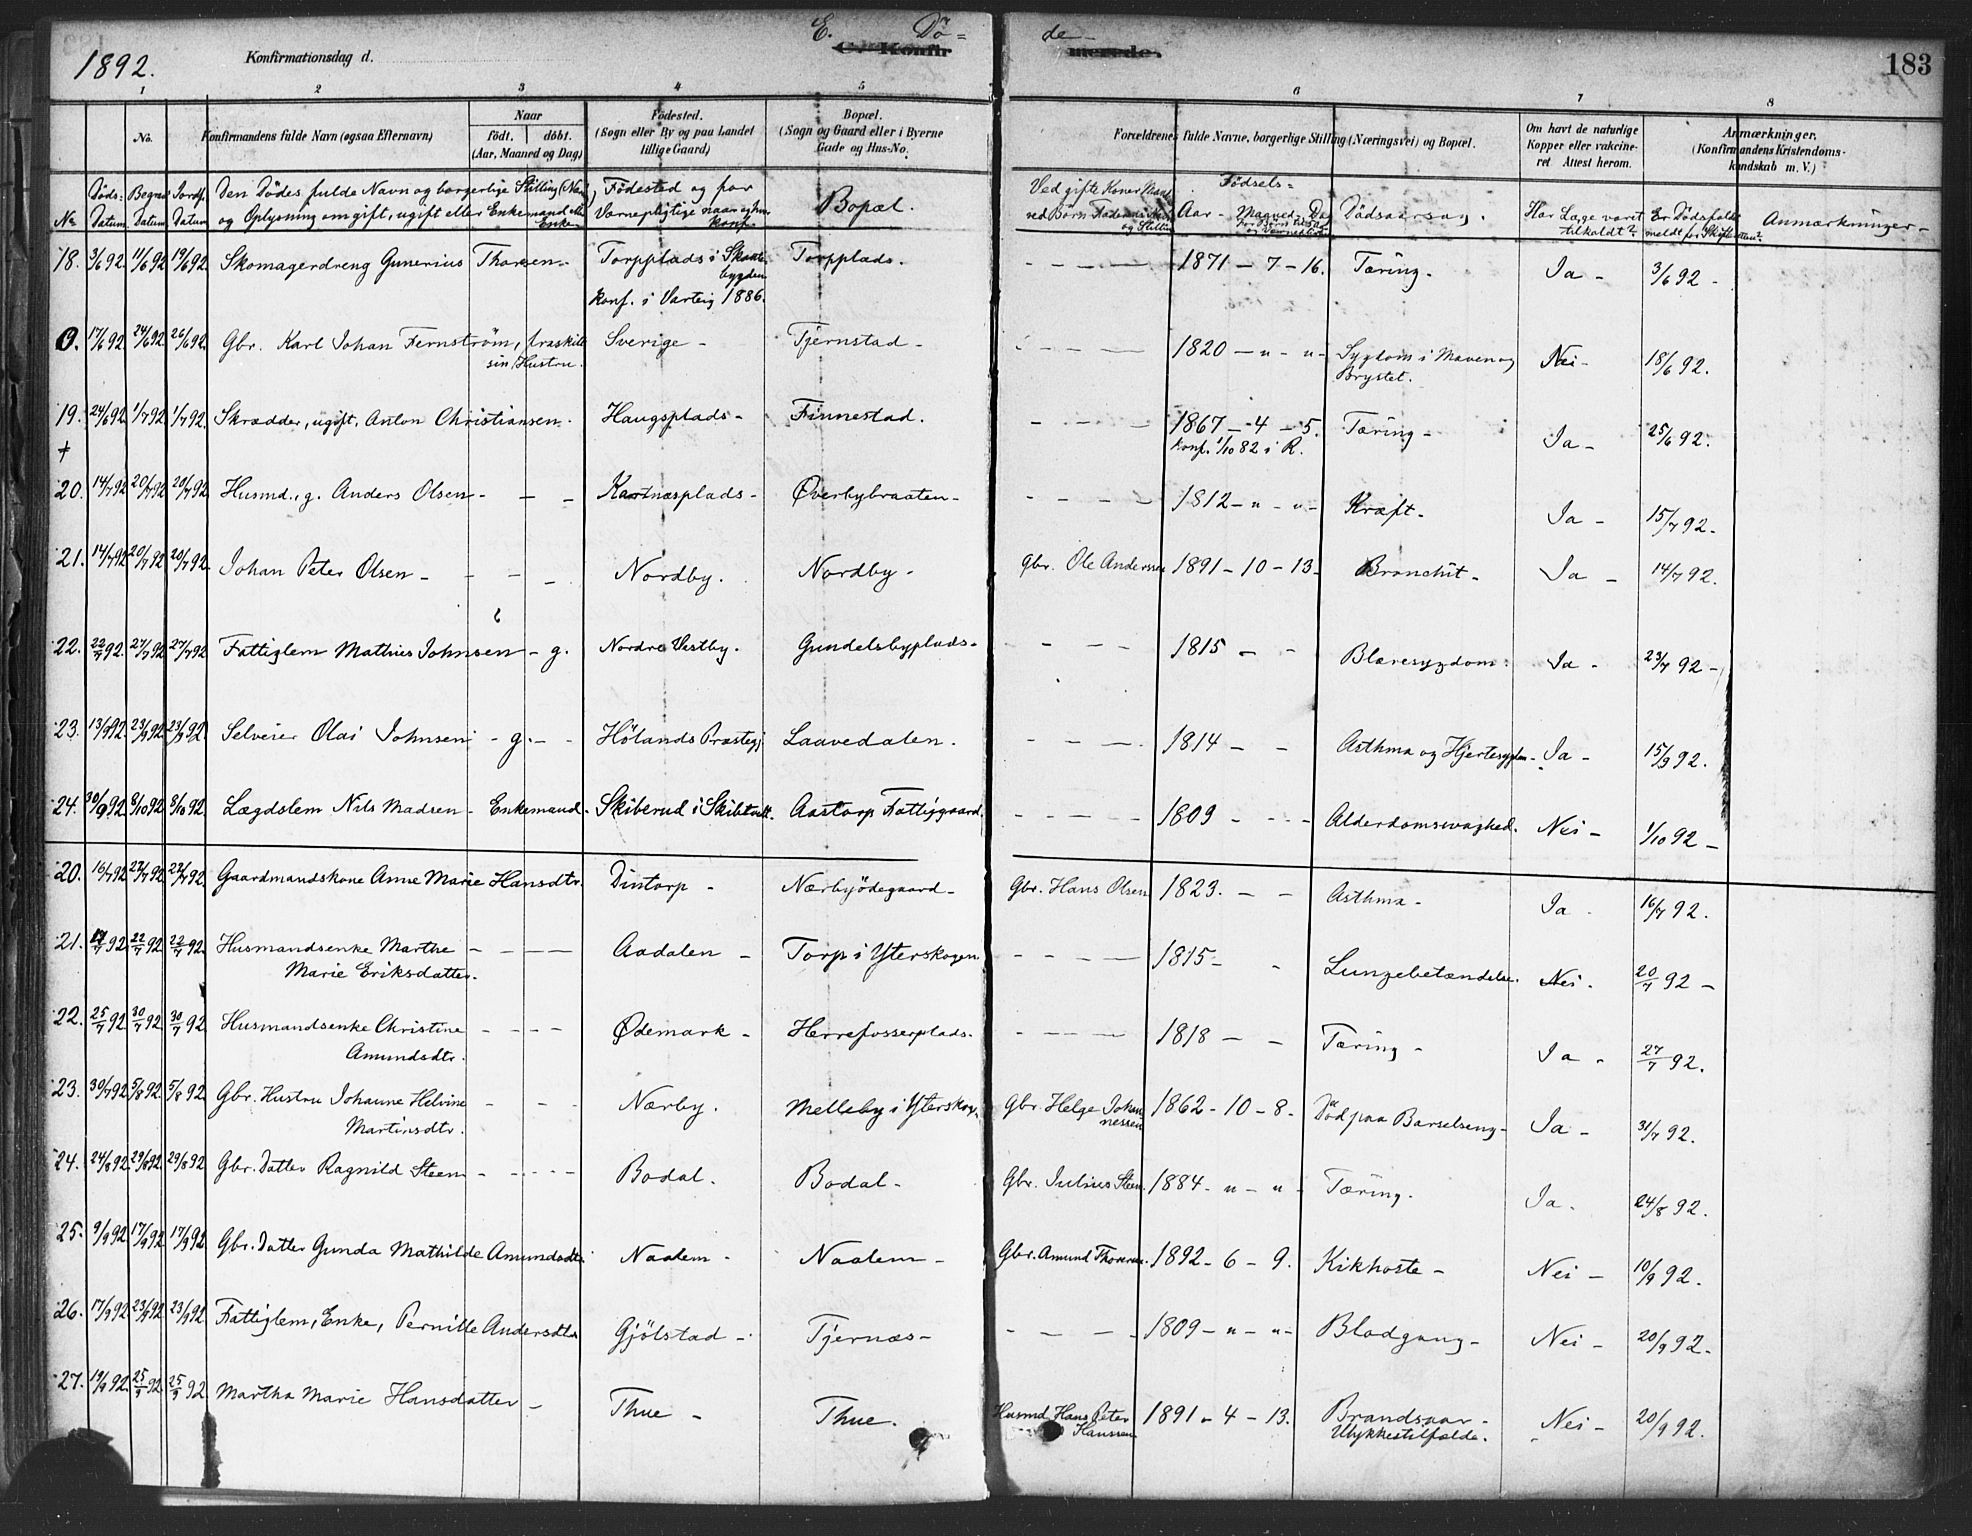 1892.
Konfirmationsdag d.
E. Dö=
de-
C. Konfir
merede.
183
1 2 3 4 5 6 7 8
No. Konfirmandens fulde Navn (ogsaa Efternavn) Naar Födested. Bopæl. Forældrenes fulde Navne, borgerlige Stilling (Næringsvei) og Bopæl. Om havt de naturlige Anmærkninger.
født. døbt. (Sogn eller By og paa Landet (Sogn og Gaard eller i Byerne Kopper eller vakcine- (Konfirmandens Kristendoms-
(Aar, Maaned og Dag) tillige Gaard) Gade og Hus-No. ret Attest herom. kundskab m. V.)
Döds- Begrav Jordf. Den Dödes fulde Navn og borgerlige Stilling (Nær Födested og for Bopæl. Ved gifte Koner Mand Födsels= Dödsaarsag. Har Læge været Er Dödsfaldet Anmærkninger-
No Datum Datum Datum og Oplysning om gift, ugift eller Enkemand eller Enke Værnepligtige naar og hvor konf. ved Börn Faderens Navn og Stilling Aar - Maaned - Dag tilkaldt? meldt for Skifteretten?
18. 3/6 92 11/6 92 19/6 92 Skomagerdreng Gunerius Thorsen - Torpplads i Skaubygden Torpplads. - - - - 1871 - 7 - 16. Tæring. Ja - 3/6 92 -
konf. i Varteig 1886.
0. 17/6 92 24/6 92 26/6 92 Gbr. Karl Johan Fernström, fraskilt Sverige - Tjernstad - - - - - 1820 - " - " - Sygdom i Maven og Nei - 18/6 92.
sin Hustru. Brystet.
19. 24/6 92 1/7 92 1/7 92. Skrædder, ugift, Anton Christiansen. Haugsplads - Finnestad. - - - - 1867 - 4 - 5. Tæring - Ja - 25/6 92.
+ konf. 1/10 82 i R.
20. 14/7 92 20/7 92 20/7 92 Husmd., g. Anders Olsen - - - Kartnæsplads - Øverbybraaten - - - - - 1812 - " - " - Kræft. Ja - 15/7 92.
21. 14/7 92 20/7 92 20/7 92. Johan Peter Olsen - - - - Nordby. Nordby - gbr. Ole Andersen 1891 - 10 - 13 - Bronchit - Ja - 14/7 92.
22. 22/7 92. 27/7 92 27/7 92 Fattiglem Mathies Johnsen - g. Nordre Vestby. Gundelsbyplads - - - - - 1815 - - Blæresygdom. Ja - 23/7 92 -
23. 13/9 92 23/9 92 23/9 92. Selveier Olai Johnsen - g. - - Hölands Præstegj Laavedalen. - - - - 1814 - - Asthma og Hjertesygdom - Ja - 15/9 92.
24. 30/9 92 8/10 92 8/10 92. Lægdslem Nils Madsen - Enkemand. Skiberud i Skibtvedt. Aastorp Fattiggaard. - - - - 1809 - - - Alderdomssvaghed. Nei - 1/10 92 -
20. 16/7 92 22/7 92 22/7 92. Gaardmandskone Anne Marie Hansdtr. Dintorp - Nærbyödegaard - Gbr. Hans Olsen 1823. - - Asthma - Ja - 16/7 92.
21. 92 22/7 92 22/7 92. Husmandsenke Marthe - - - - Aadalen - Torp i Yterskogen - - - - 1815 - - Lungebetændelse. Nei. 20/7 92 -
Marie Eriksdatter.
22. 25/7 92 30/7 92 30/7 92 Husmandsenke Christine - - - - Ødemark - Herrefosserplads. - - - - 1818 - - Tæring - Ja - 27/7 92.
Amundsdtr.
23. 30/7 92 5/8 92. 5/8 92 Gbr. Hustru Johanne Helvine - - - Nærby. Melleby i Yterskog. Gbr. Helge Johannessen 1862 - 10 - 8 - Död paa Barselseng - Ja - 31/7 92.
Martinsdtr.
24. 24/8 92. 29/8 92. 29/8 92 Gbr. Datter Ragnild Steen - - - - - Bodal. Bodal - Gbr. Julius Steen. 1884 - " - " - Tæring. Ja. 24/8 92.
25. 9/9 92 17/9 92 17/9 92 Gbr. Datter Gunda Mathilde Amundsdtr. Naalem - Naalem - Gbr. Amund Thoresen. 1892 - 6 - 9. Kikhoste - Nei - 10/9 92.
26. 17/9 92 23/9 92 23/9 92 Fattiglem, Enke, Pernille Andersdtr Gjölstad - Tjernæs - - - - - 1809 - " - " - Blodgang - Nei - 20/9 92.
27. 19/9 92. 25/9 92. 25/9 92 Martha Marie Hansdatter - Thue - Thue. Husmd. Hans Peter Hanssen. 1891 - 4 - 13. Brandsaar - Nei - 20/9 92.
Ulykkestilfælde.